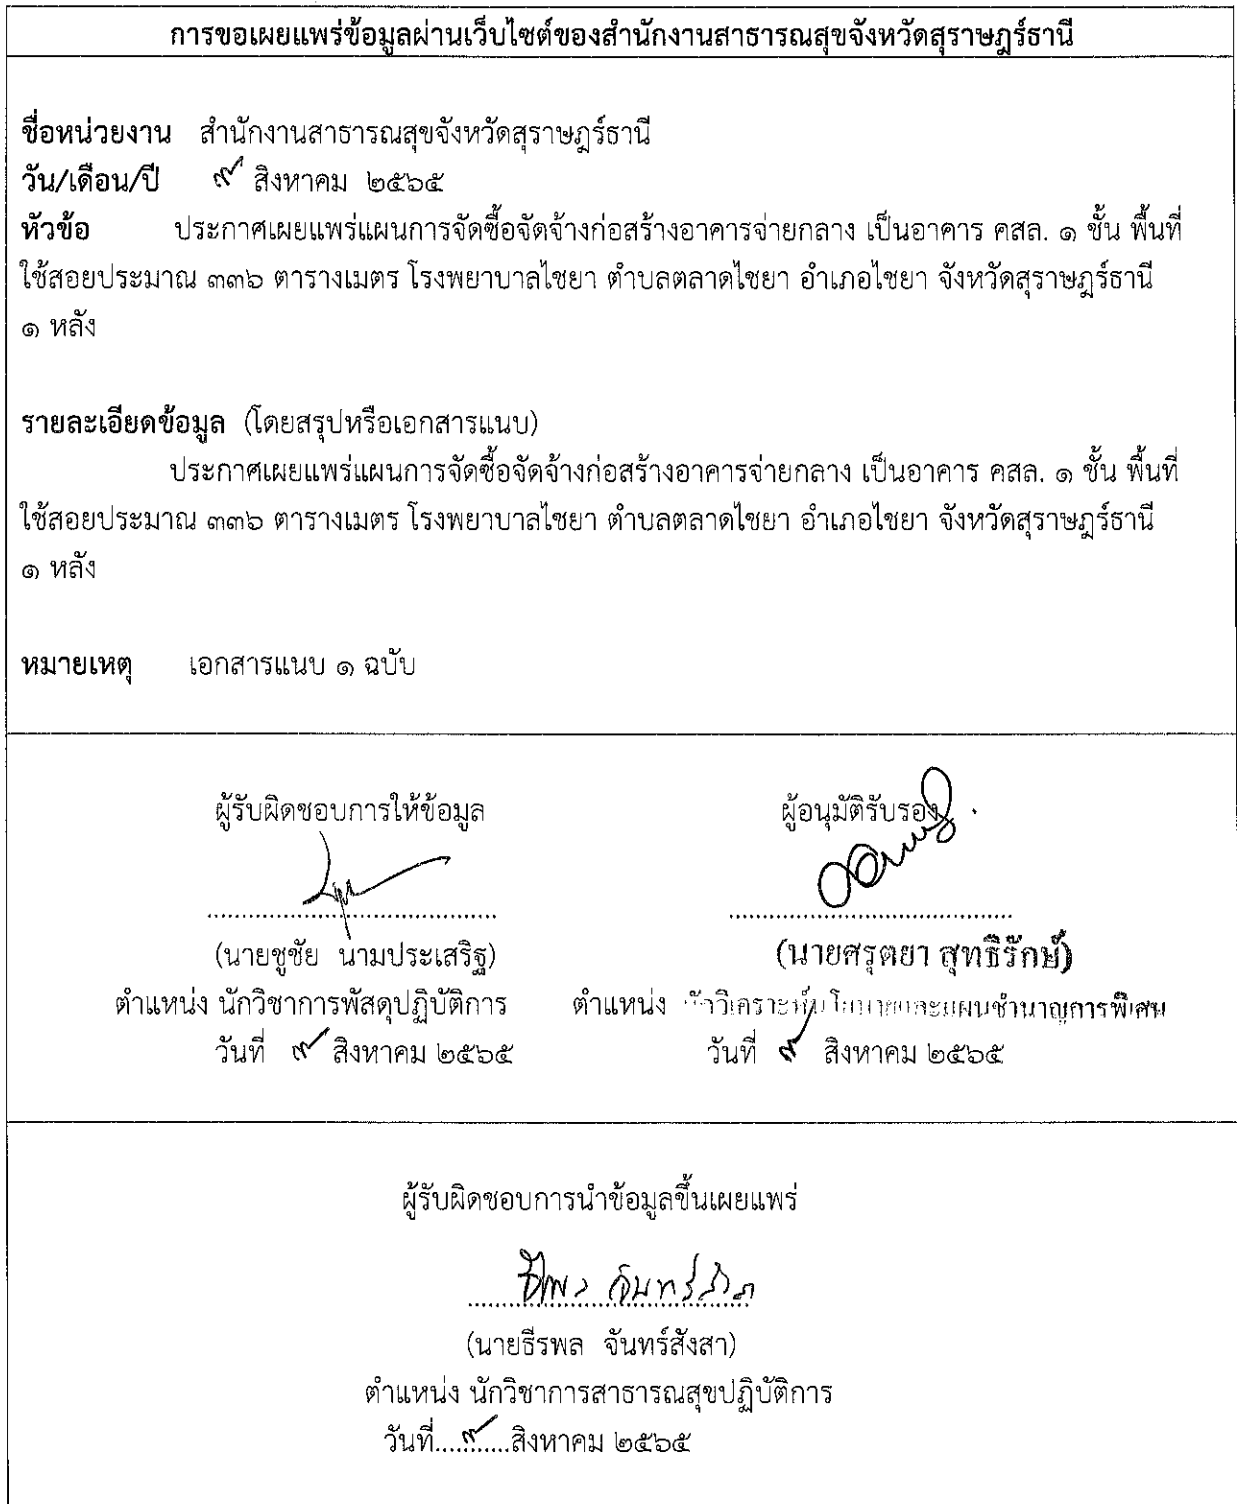 การขอเผยแพร่ข้อมูลผ่านเว็บไซต์ของสำนักงานสาธารณสุขจังหวัดสุราษฎร์ธานี
ชื่อหน่วยงาน สำนักงานสาธารณสุขจังหวัดสุราษฎร์ธานี
วัน/เดือน/ปี ๙ สิงหาคม ๒๕๖๕
หัวข้อ ประกาศเผยแพร่แผนการจัดซื้อจัดจ้างก่อสร้างอาคารจ่ายกลาง เป็นอาคาร คสล. ๑ ชั้น พื้นที่
ใช้สอยประมาณ ๓๓๖ ตารางเมตร โรงพยาบาลไชยา ตำบลตลาดไชยา อำเภอไชยา จังหวัดสุราษฎร์ธานี
๑ หลัง
รายละเอียดข้อมูล (โดยสรุปหรือเอกสารแนบ)
ประกาศเผยแพร่แผนการจัดซื้อจัดจ้างก่อสร้างอาคารจ่ายกลาง เป็นอาคาร คสล. ๑ ชั้น พื้นที่
ใช้สอยประมาณ ๓๓๖ ตารางเมตร โรงพยาบาลไชยา ตำบลตลาดไชยา อำเภอไชยา จังหวัดสุราษฎร์ธานี
๑ หลัง
หมายเหตุ เอกสารแนบ ๑ ฉบับ
ผู้รับผิดชอบการให้ข้อมูล ผู้อนุมัติรับรอง
(นายชูชัย นามประเสริฐ) (นายศรุตยา สุทธิรักษ์)
ตำแหน่ง นักวิชาการพัสดุปฏิบัติการ ตำแหน่ง นักวิเคราะห์นโยบายและแผนชำนาญการพิเศษ
วันที่ ๙ สิงหาคม ๒๕๖๕ วันที่ ๙ สิงหาคม ๒๕๖๕
ผู้รับผิดชอบการนำข้อมูลขึ้นเผยแพร่
(นายธีรพล จันทร์สังสา)
ตำแหน่ง นักวิชาการสาธารณสุขปฏิบัติการ
วันที่....๙....สิงหาคม ๒๕๖๕